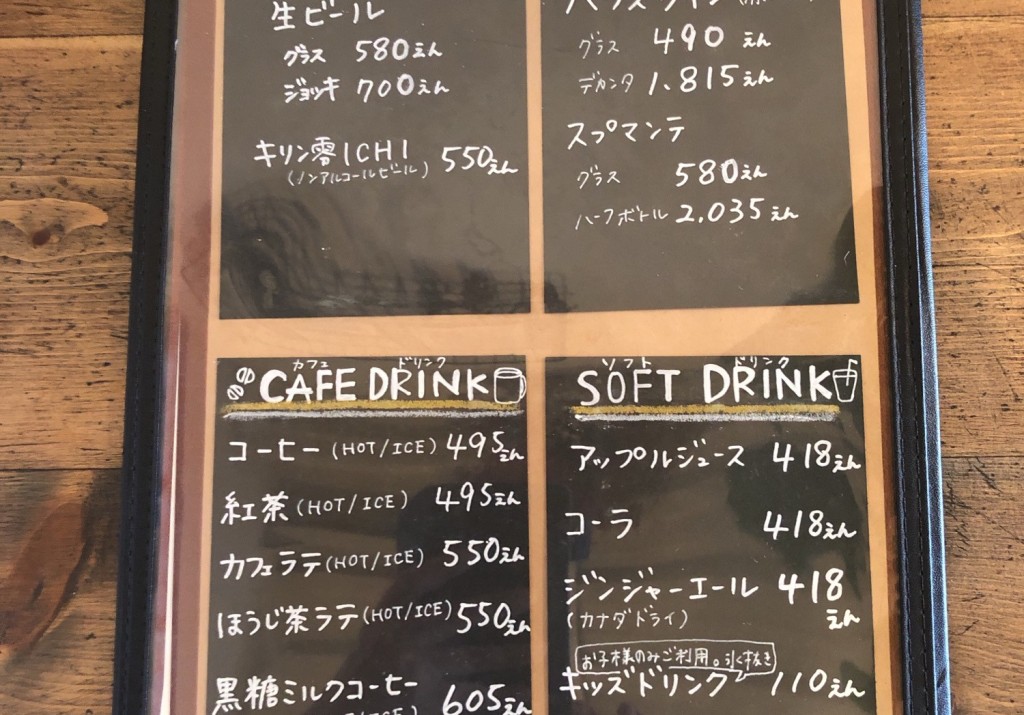 生ビール
グラス 580えん
ジョッキ 700えん
キリン零ICHI 550えん
(ノンアルコールビール)
グラス 490えん
デカンタ 1.815えん
スプマンテ
グラス 580えん
ハーフボトル 2.035えん
カフェ ドリンク
CAFE DRINK
コーヒー (HOT/ICE) 495えん
紅茶 (HOT/ICE) 495えん
カフェラテ (HOT/ICE) 550えん
ほうじ茶ラテ (HOT/ICE) 550えん
黒糖ミルクコーヒー 605えん
(HOT/ICE)
ソフト ドリンク
SOFT DRINK
アップルジュース 418えん
コーラ 418えん
ジンジャーエール 418えん
(カナダドライ)
お子様のみご利用。氷抜き
キッズドリンク 110えん